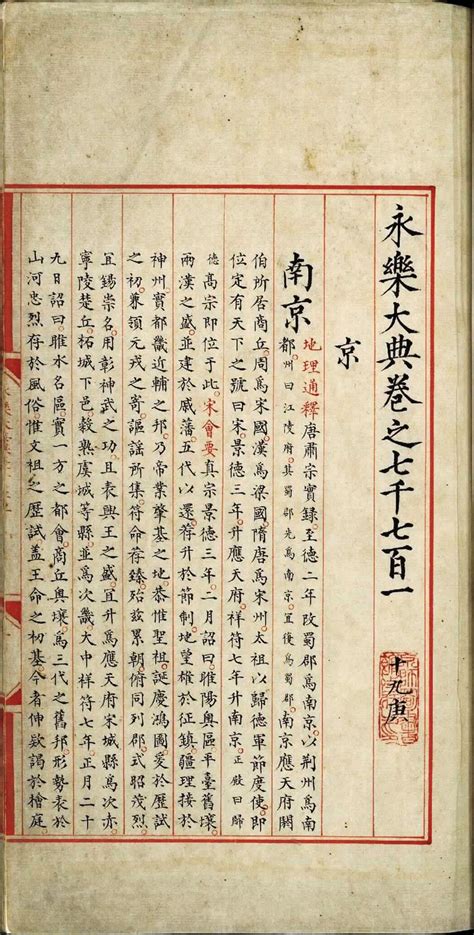 永樂大典卷之七千七百一 十九庚
京
南京
地理通釋唐肅宗實錄至德二年改蜀郡爲南京。以荆州爲南
都州曰江陵府。其蜀郡先爲南京。宜復爲蜀郡。南京應天府閼
伯所居商丘。周爲宋國。漢爲梁國。隋唐爲宋州。太祖以歸德軍節度使。即
位定有天下之號曰宋。景德三年。升應天府。祥符七年升南京。正殿曰歸
德。高宗即位于此。宋會要真宗景德三年二月詔曰。睢陽奧區。平臺舊壤。
兩漢之盛。並建於戚藩。五代以還。荐升於節制。地望雄於征鎮。疆理接於
神州。實都畿近輔之邦。乃帝業肇基之地。恭惟聖祖誕慶鴻圖。爰於歷試
之初。兼領元戎之寄。謳謠所集。符命荐臻。殆茲累朝。俯同列郡。式昭茂烈。
宜錫崇名。用彰神武之功。且表興王之盛。宜升爲應天府。宋城縣爲次赤。
寧陵楚丘柘城下邑榖熟虞城等縣並爲次畿。大中祥符七年正月二十
九日詔曰。睢水名區。實一方之都會。商丘奧壤。爲三代之舊邦。形勢表於
山河。忠烈存於風俗。惟文祖之歷試。蓋王命之初基。今者伸欵謁於檜庭。